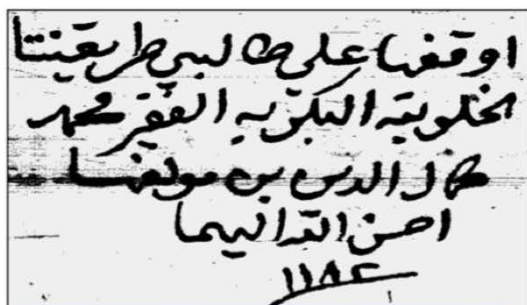 اوقفها على طالبي طريقتنا
الخلوتيه البكريه الفقير محمد
كمال الدين بن مولفها
احسن الله اليهما
١١٨٢